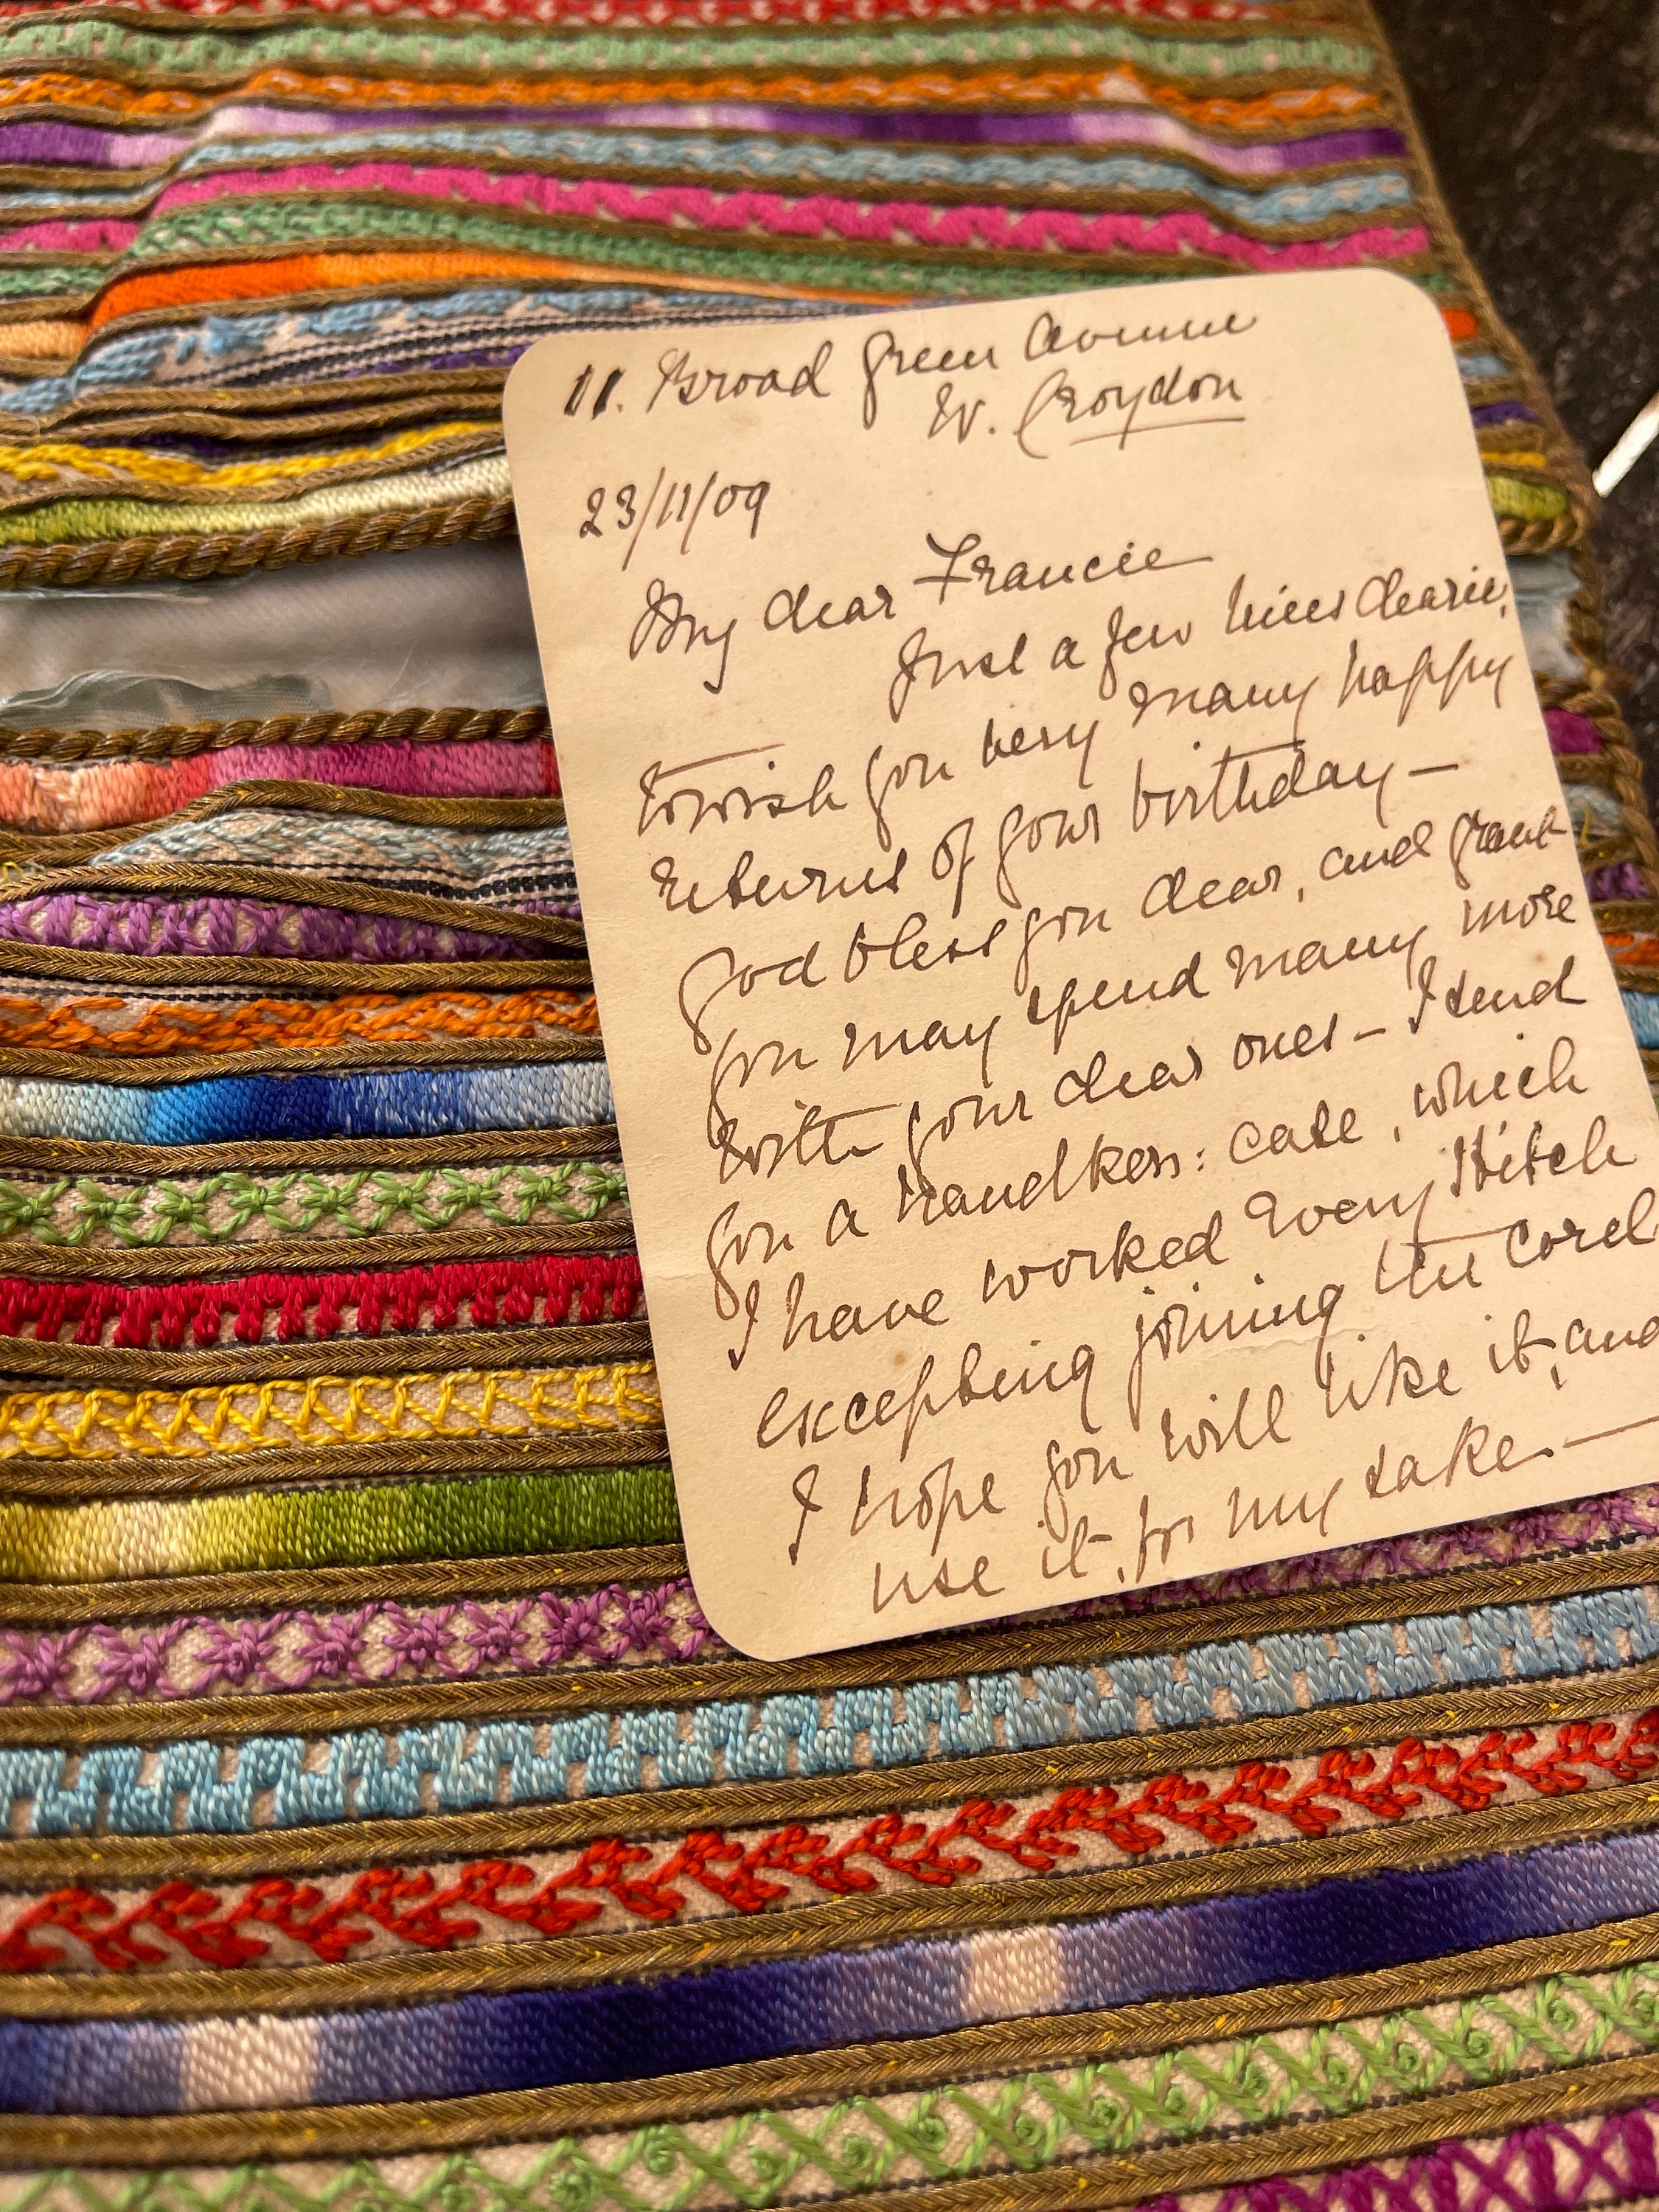 11. Broad Green Avenue
W. Croydon
23/11/09
My dear Francie
Just a few lines dearie,
to wish you very many happy
returns of your birthday —
God bless you dear, and grant
you may spend many more
with your dear ones — I send
you a handker: case, which
I have worked every stitch
excepting joining the cord
I hope you will like it, and
use it, for my sake. —